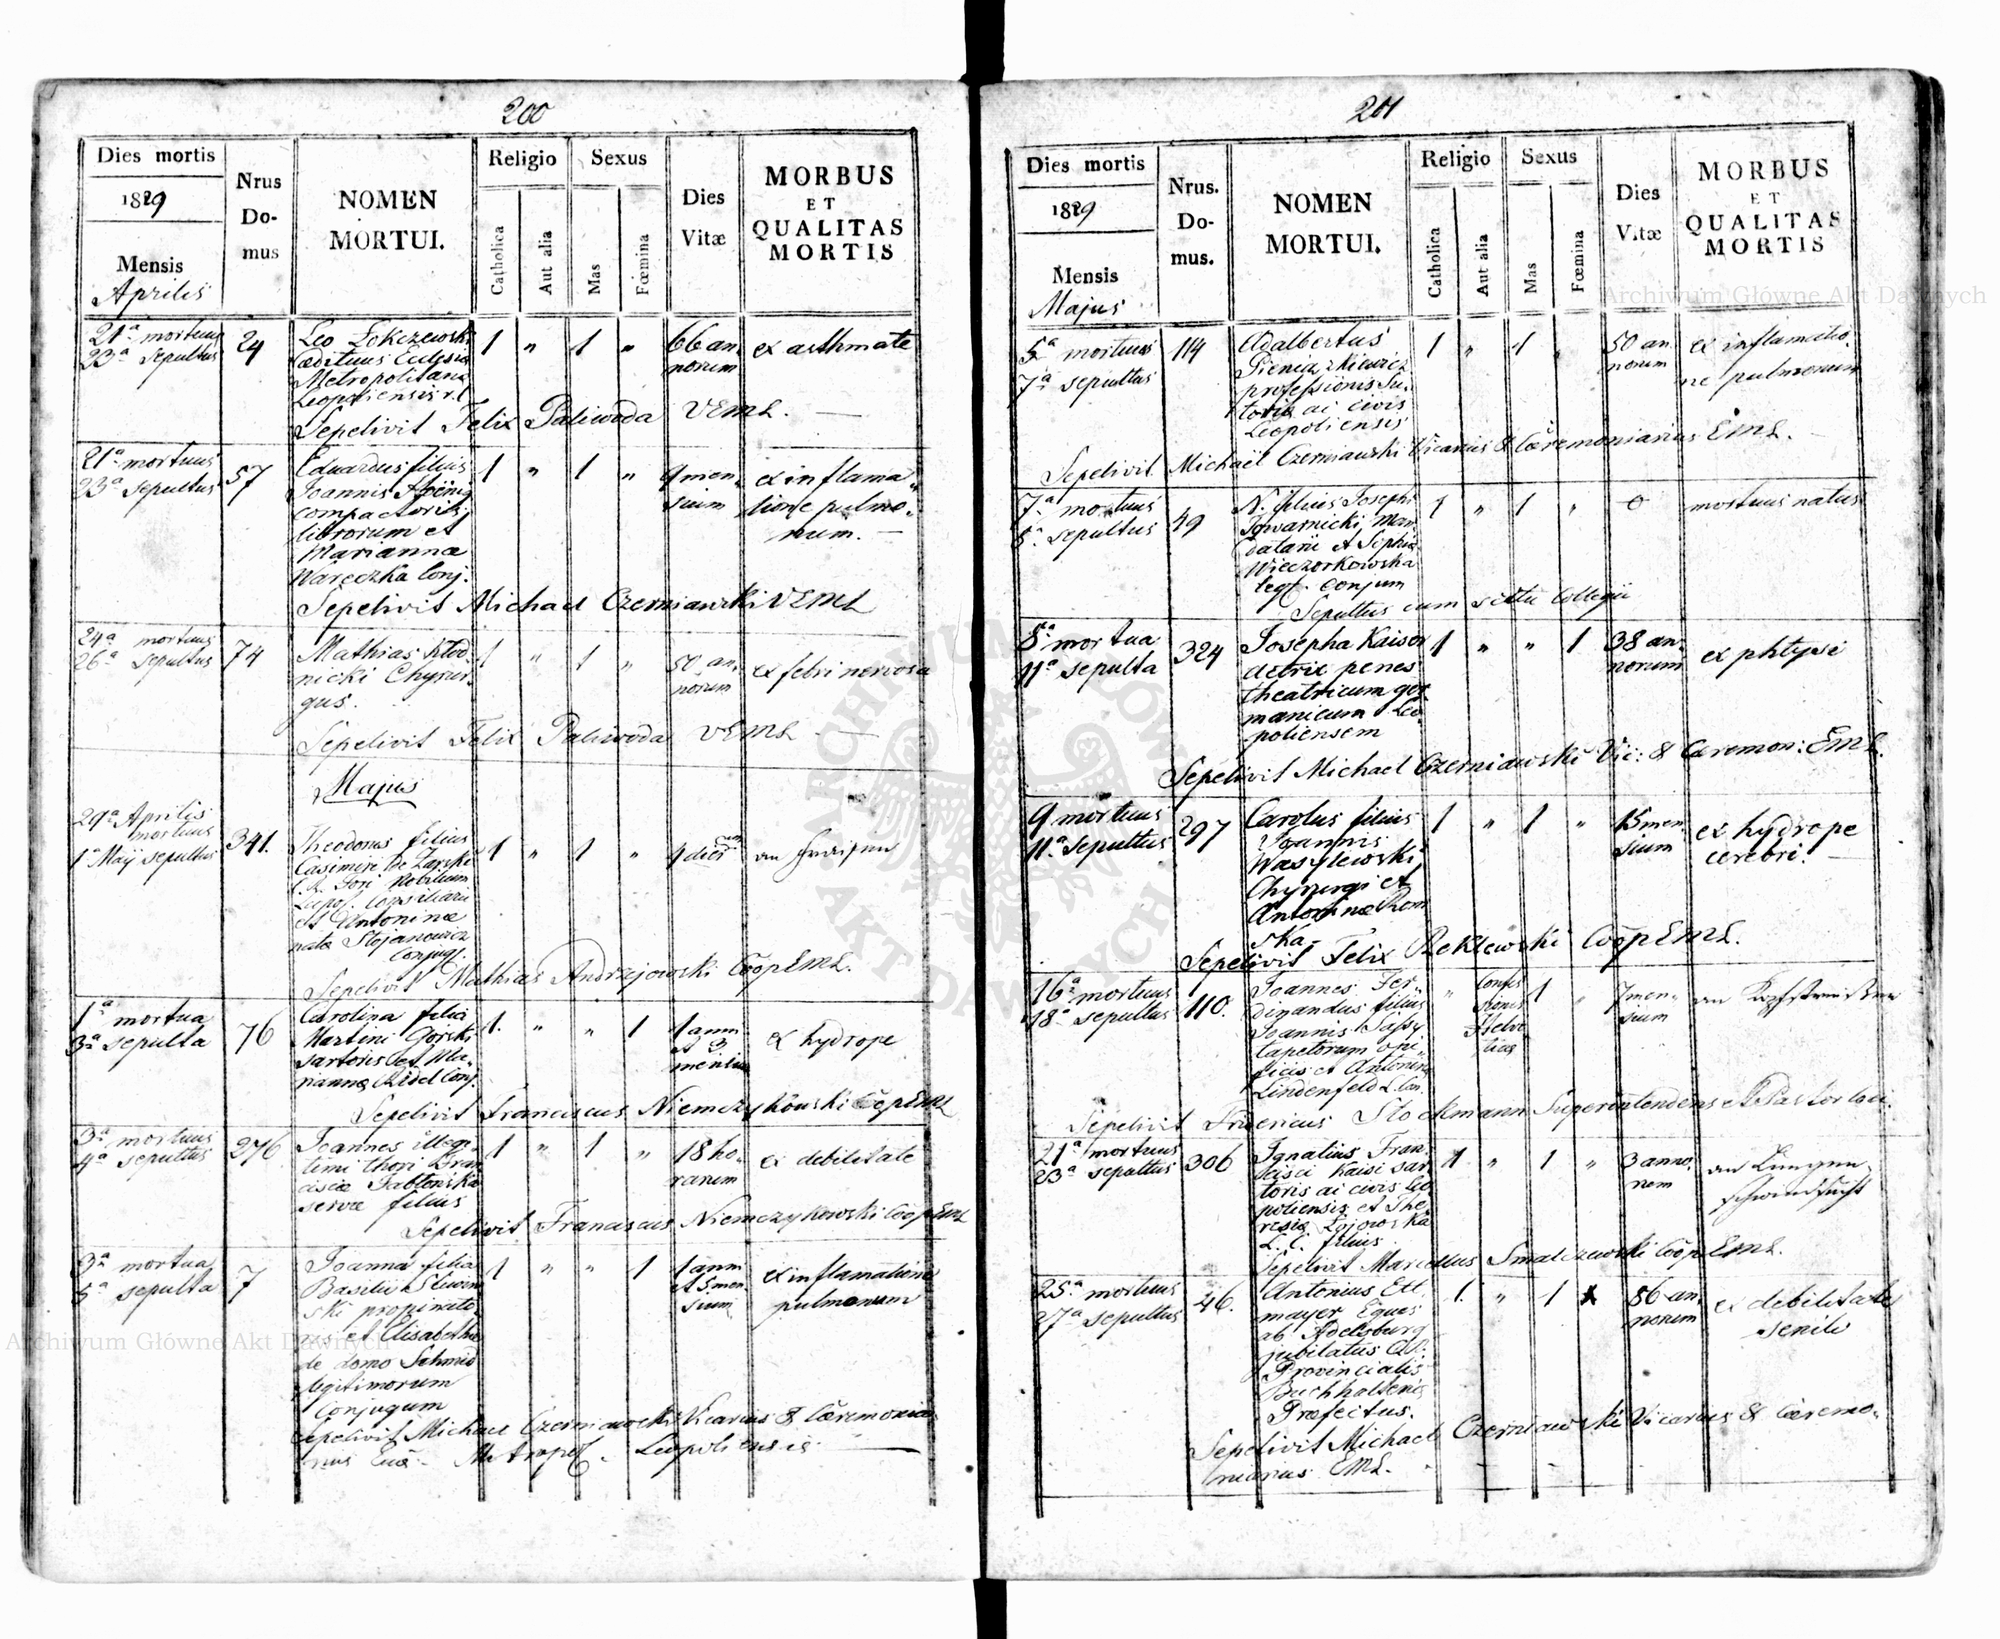 200
Dies mortis
1829
Mensis
Aprilis
Nrus
Do-
mus
NOMEN
MORTUI.
Religio
Catholica
Aut alia
Sexus
Mas
Fœmina
Dies
Vitæ
MORBUS
ET
QUALITAS
MORTIS
21ª mortuus
23ª sepultus
24
Leo
Ædituus Eclesiæ
Metropolitanæ
Leopoliensis
1 " 1 "
66 an-
norum
ex asthmate
Sepelivit Felix Paliwoda VEML.
21ª mortuus
23ª sepultus
57
Eduardus filius
Joannis
compactoris
librorum et
Marianna
Wareczka Conj.
1 " 1 "
9 men-
sium
ex inflama
tione pulmo-
num.
Sepelivit Michael Czerniawski VEML
24ª mortuus
26ª sepultus
74
Mathias Kłod-
nicki Chyrur-
gus.
1 " 1 "
50 an-
norum
ex febri nervosa
Sepelivit Felix Paliwoda VEML
Majus
29ª Aprilis
mortuus
1ª Maÿ sepultus
341.
Theodorus filius
Casimiri de
Nobilium
Leopol. Consiliarii
et Antoninæ
nata Stojanowicz
Conjug.
1 " 1 "
9 dies
an Fraisen
Sepelivit Mathias Andrzejowski CoopEML.
1ª mortua
3ª sepulta
76
Carolina filia
Martini Gorski
sartoris et Ma-
rianna Ridel Conj.
1. " " 1
1 anni
et 3
mensium
ex hydrope
Sepelivit Franciscus Niemczykowski CoopEML
3ª mortuus
4ª sepultus
276
Joannes illegi-
timi thori Fran
cisca Jablonska
servæ filius
1 " 1 "
18 ho-
rarum
ex debilitate
Sepelivit Franciscus Niemczykowski CoopEML
3ª mortua
5ª sepulta
7
Joanna filia
Basilii
ski propinato-
ris et Elisabetha
de domo Schmid
legitimorum
Conjugum
1 " " 1
1 anni
et 5 men-
sium
ex inflamatione
pulmonum
Sepelivit Michael Czerniawski Vicarius & Cæremonia-
Metropol. Leopoliensis.
201
Dies mortis
1829
Mensis
Majus
Nrus.
Do-
mus.
NOMEN
MORTUI.
Religio
Catholica
Aut alia
Sexus
Mas
Fœmina
Dies
Vitæ
MORBUS
ET
QUALITAS
MORTIS
5ª mortuus
7ª sepultus
114
Adalbertus
Pieniczkiewicz
professionis Su-
toria ac civis
Leopoliensis
1 " 1 "
50 an-
norum
ex inflamatio-
ne pulmonum
Sepelivit Michaël Czerniawski Vicarius & Cæremoniarius EML.
7ª mortuus
8ª sepultus
49
N. filius Josephi
Towarnicki Man
datarii et Sophia
Wieczorkowska
legt. conjum
1 " 1 "
0
mortuus natus
Sepultus cum scitu Collegii
8ª mortua
11ª sepulta
324
Josepha Kaiser
actrix penes
theatricum ger
manicum Leo
poliensem
1 " " 1
38 an-
norum
ex phtysi
Sepelivit Michael Czerniawski Vic: & Cæremon: EML.
9 mortuus
11ª sepultus
297
Carolus filius
Joannis
Wasylewski
Chyrurgi et
Antonina Rom
ska
1 " 1 "
15 men-
sium
ex hydrope
cerebri.
Sepelivit Felix Rektewski CoopEML.
16ª mortuus
18ª sepultus
110.
Joannes Fer-
dinandus filius
Joannis
tapetorum opi-
ficis et Antonina
Lindenfeld
" Confes
sionis
Helve
ticæ 1 "
7 men-
sium
an
Sepelivit Fridericus Stockmann Superintendens et Pastor loci.
21ª mortuus
23ª sepultus
306
Ignatius Fran-
cisci Kaisi sar
toris ac civis Leo
poliensis et The
resia
L. C. filius
1 " 1 "
3 anno-
rum
an Lungen-
schwindsucht
Sepelivit Marcellus Smalczewski CoopEML.
25ª mortuus
27ª sepultus
46.
Antonius Ett
mayer Eques
ab Adelsburg
jubilatus
Provincialis
Buchhalteriæ
Præfectus.
1. " 1
86 an-
norum
ex debilitate
senili
Sepelivit Michael Czerniawski Vicarius & Cæremo-
niarius EML.
Archiwum Główne Akt Dawnych
Archiwum Główne Akt Dawnych
ARCHIWUM GŁÓWNE AKT DAWNYCH